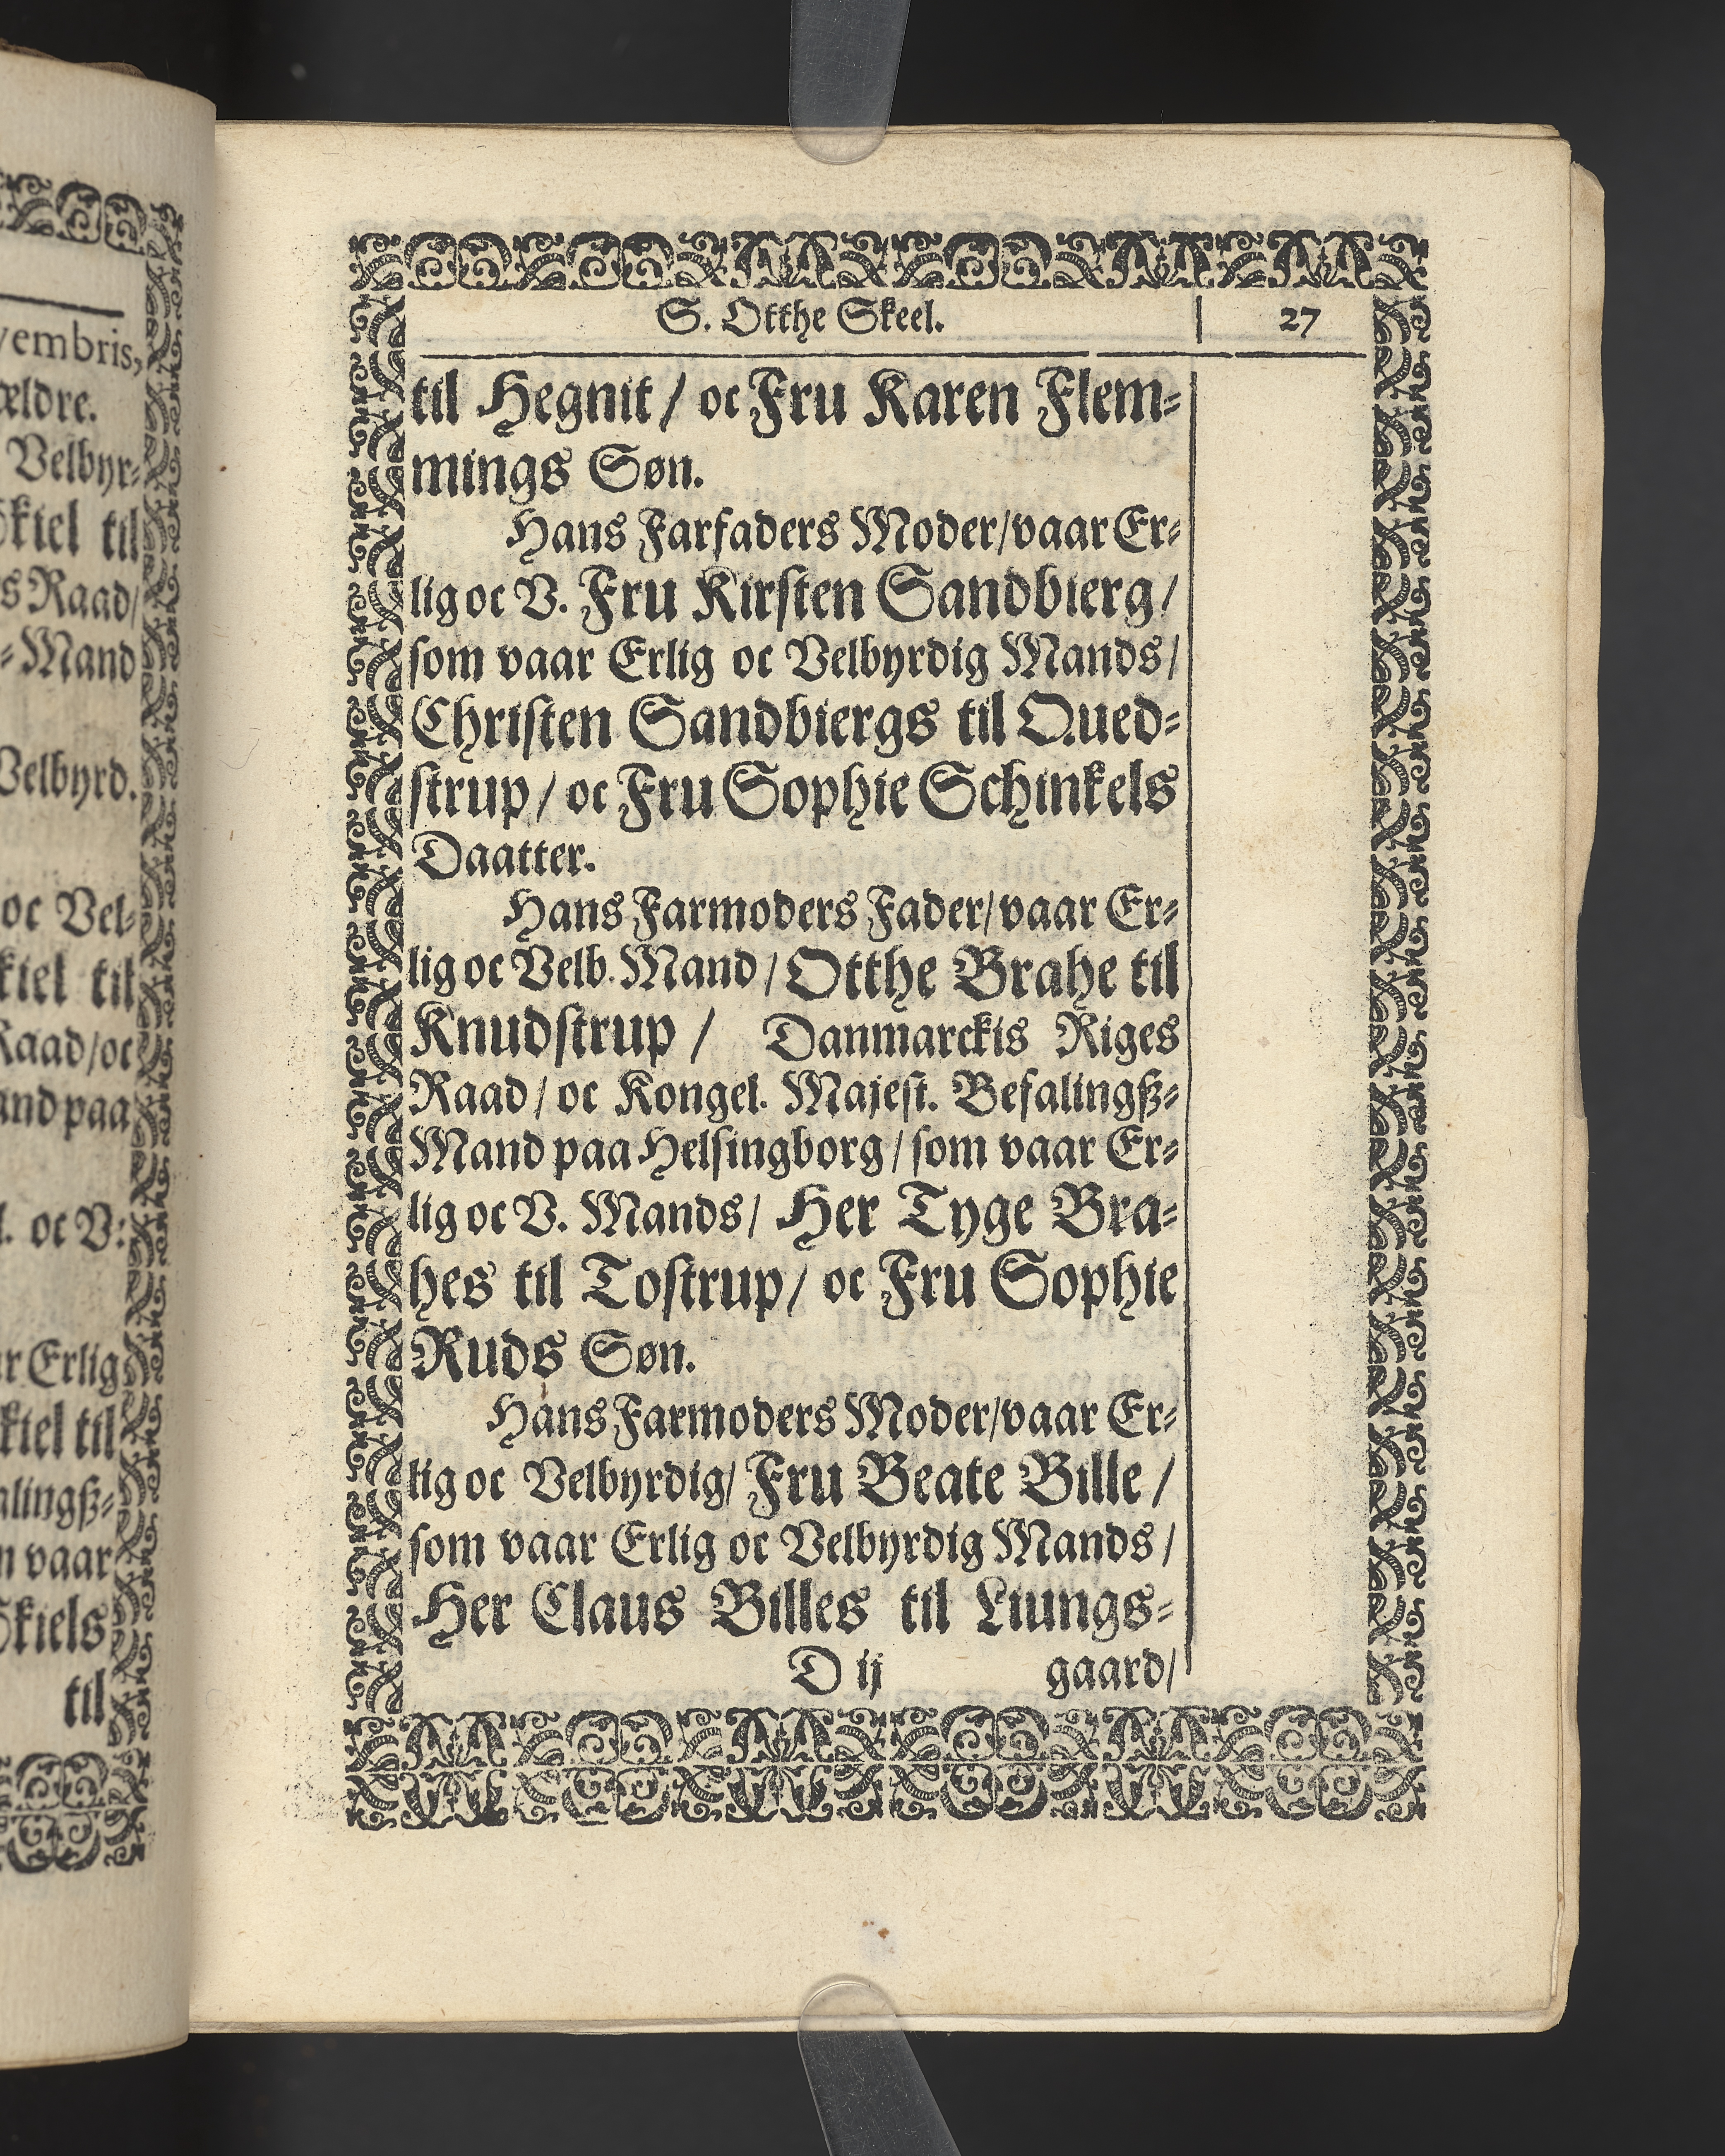 vembris,
ældre.
Velbyr⸗
kiel til
s Raad/
⸗Mand
Velbyrd.
oc Vel⸗
kiel til
Raad/oc
and paa
l. oc V:
ar Erlig
kiel til
alingß⸗
m vaar
Skiels
til
S. Otthe Skeel. 27
til Hegnit / oc Fru Karen Flem⸗
mings Søn.
Hans Farfaders Moder/vaar Er⸗
lig oc V. Fru Kirſten Sandbierg/
ſom vaar Erlig oc Velbyrdig Mands/
Chriſten Sandbiergs til Qued⸗
ſtrup/ oc Fru Sophie Schinkels
Daatter.
Hans Farmoders Fader/vaar Er⸗
lig oc Velb. Mand/Otthe Brahe til
Knudſtrup / Danmarckis Riges
Raad/ oc Kongel. Majeſt. Befalingß⸗
Mand paa Helſingborg/ ſom vaar Er⸗
lig oc V. Mands/ Her Tyge Bra⸗
hes til Toſtrup/ oc Fru Sophie
Ruds Søn.
Hans Farmoders Moder/vaar Er⸗
lig oc Velbyrdig/ Fru Beate Bille /
ſom vaar Erlig oc Velbyrdig Mands/
Her Claus Billes til Liungs⸗
D ij gaard/